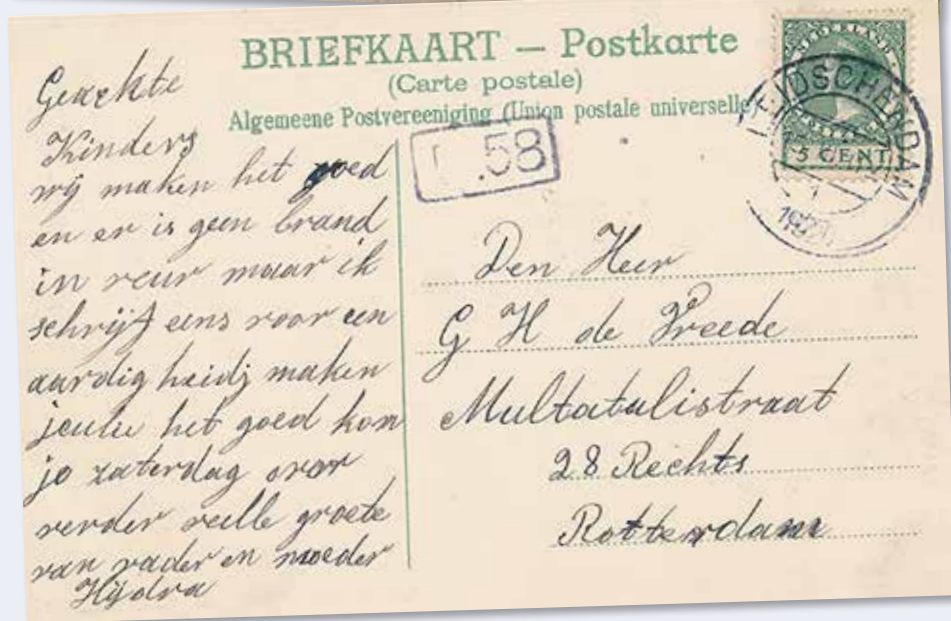 BRIEFKAART — Postkarte
(Carte postale)
Algemeene Postvereeniging (Union postale universelle)
NEDERLAND
5 CENT
LEIDSCHENDAM
.58
Geachte
Kinders
wij maken het goed
en er is geen brand
in veur maar ik
schrijf eens voor een
aardigheidj maken
jeulie het goed kom
jo zaterdag over
verder veille groete
van vader en moeder
Hijdra
Den Heer
G H de Vreede
Multatulistraat
28 Rechts
Rotterdam